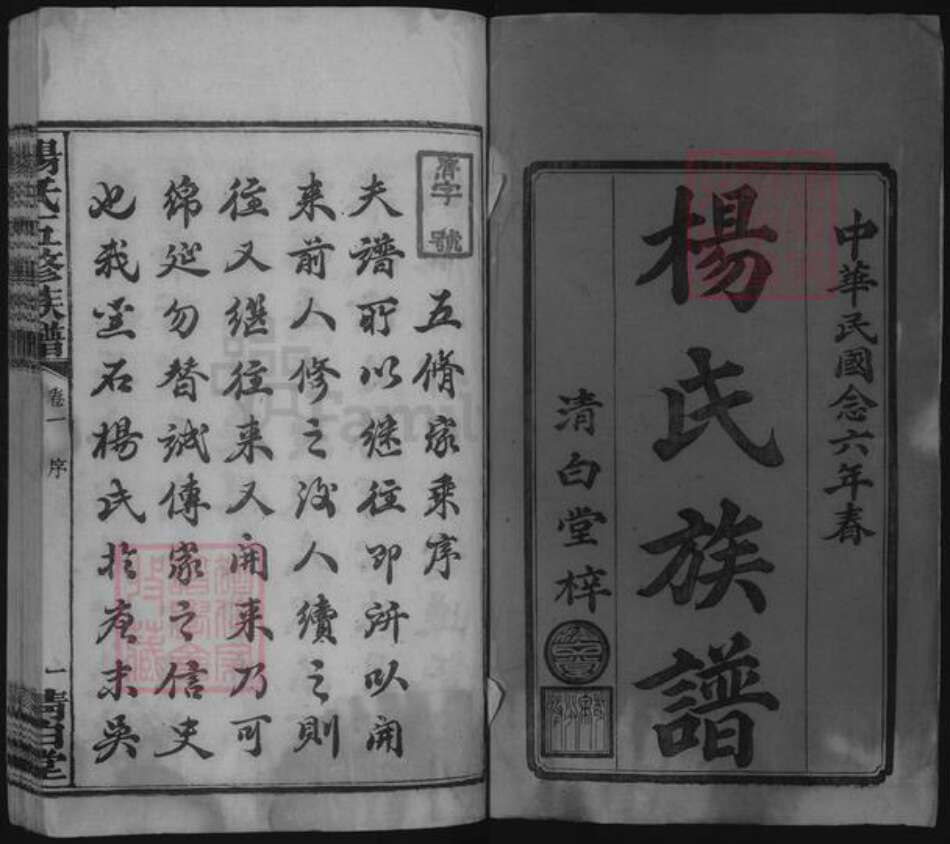 中華民國念六年春
楊氏族譜
清白堂梓
字號
五脩家乘序
夫譜所以繼往即所以開
來前人修之後人續之則
往又繼往來又開來乃可
綿延勿替誠傳家之信史
也我堂石楊氏於唐末吳
楊氏五修族譜
卷一
序
一
清白堂